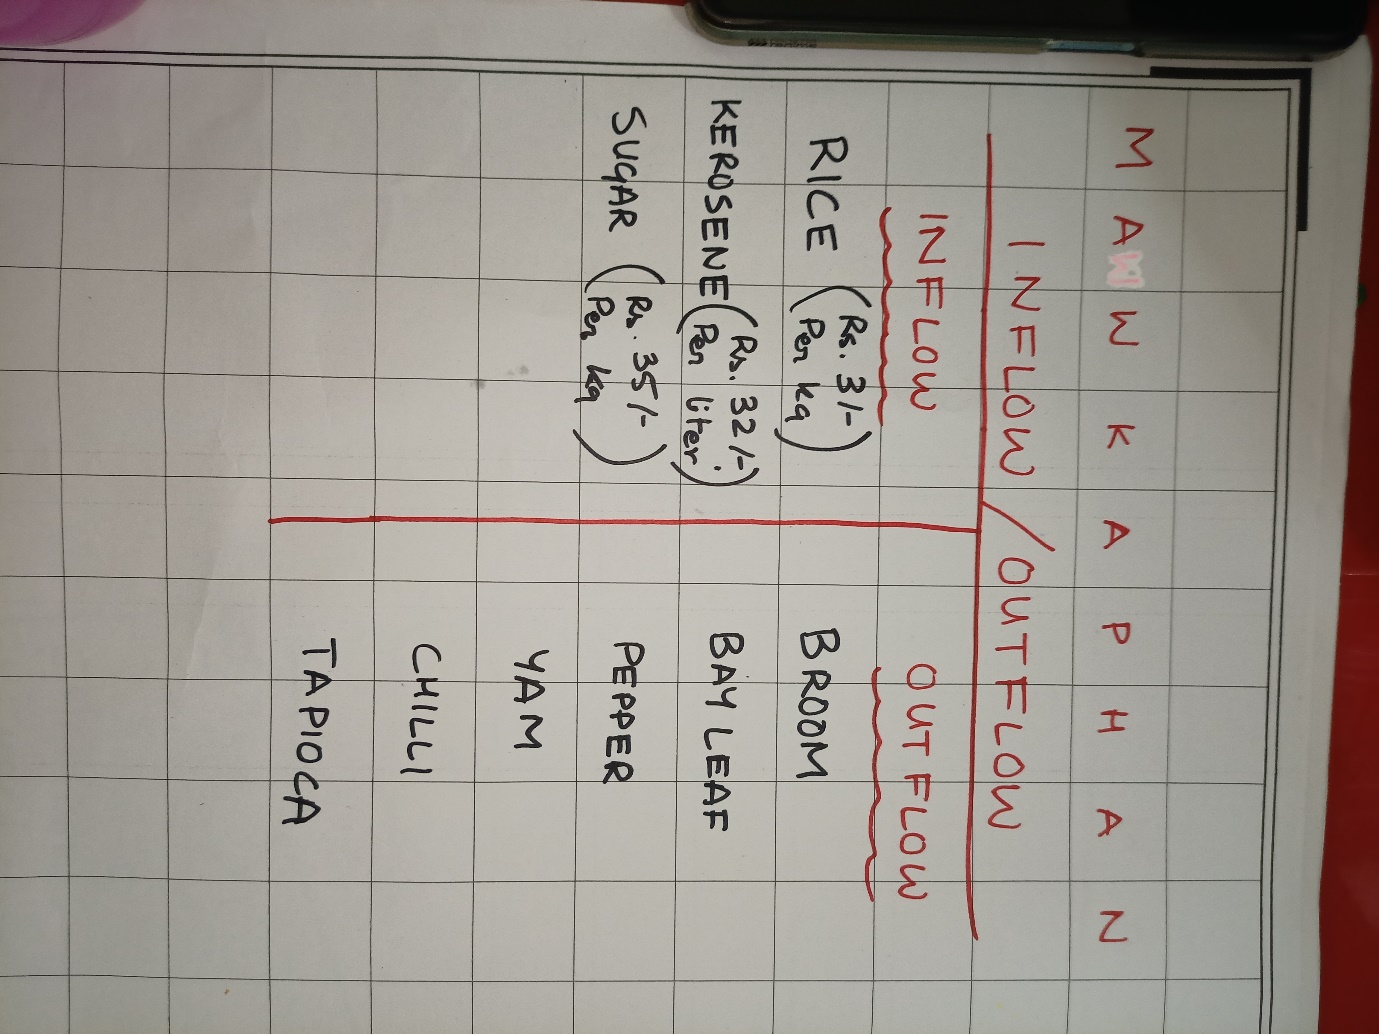 MAWKAPHAN
INFLOW/OUTFLOW
INFLOW
RICE (Rs. 3/- Per kg)
KEROSENE (Rs. 32/- Per liter)
SUGAR (Rs. 35/- Per kg)
OUTFLOW
BROOM
BAY LEAF
PEPPER
YAM
CHILLI
TAPIOCA